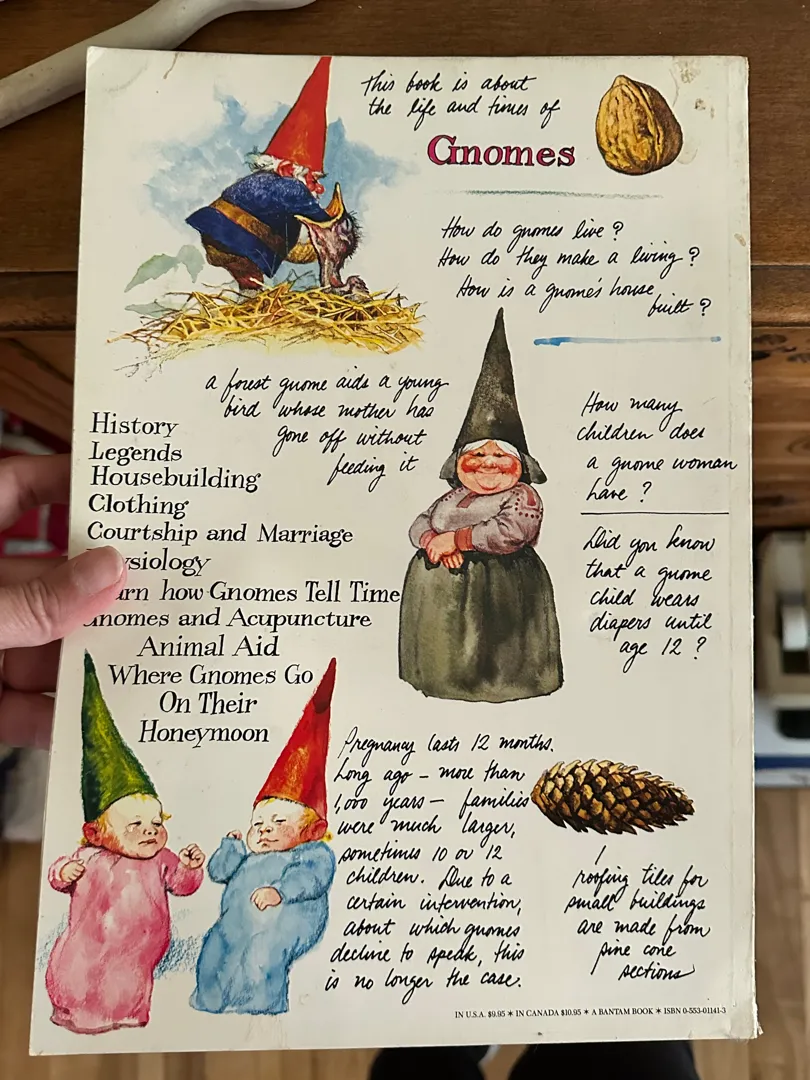 This book is about
the life and times of
Gnomes
How do gnomes live?
How do they make a living?
How is a gnome's house
built?
a forest gnome aids a young
bird whose mother has
gone off without
feeding it
History
Legends
Housebuilding
Clothing
Courtship and Marriage
ysiology
arn how Gnomes Tell Time
Gnomes and Acupuncture
Animal Aid
Where Gnomes Go
On Their
Honeymoon
How many
children does
a gnome woman
have?
Did you know
that a gnome
child wears
diapers until
age 12?
Pregnancy lasts 12 months.
Long ago – more than
1,000 years – families
were much larger,
sometimes 10 or 12
children. Due to a
certain intervention,
about which gnomes
decline to speak, this
is no longer the case.
roofing tiles for
small buildings
are made from
pine cone
sections
IN U.S.A. $9.95 * IN CANADA $10.95 * A BANTAM BOOK * ISBN 0-553-01141-3